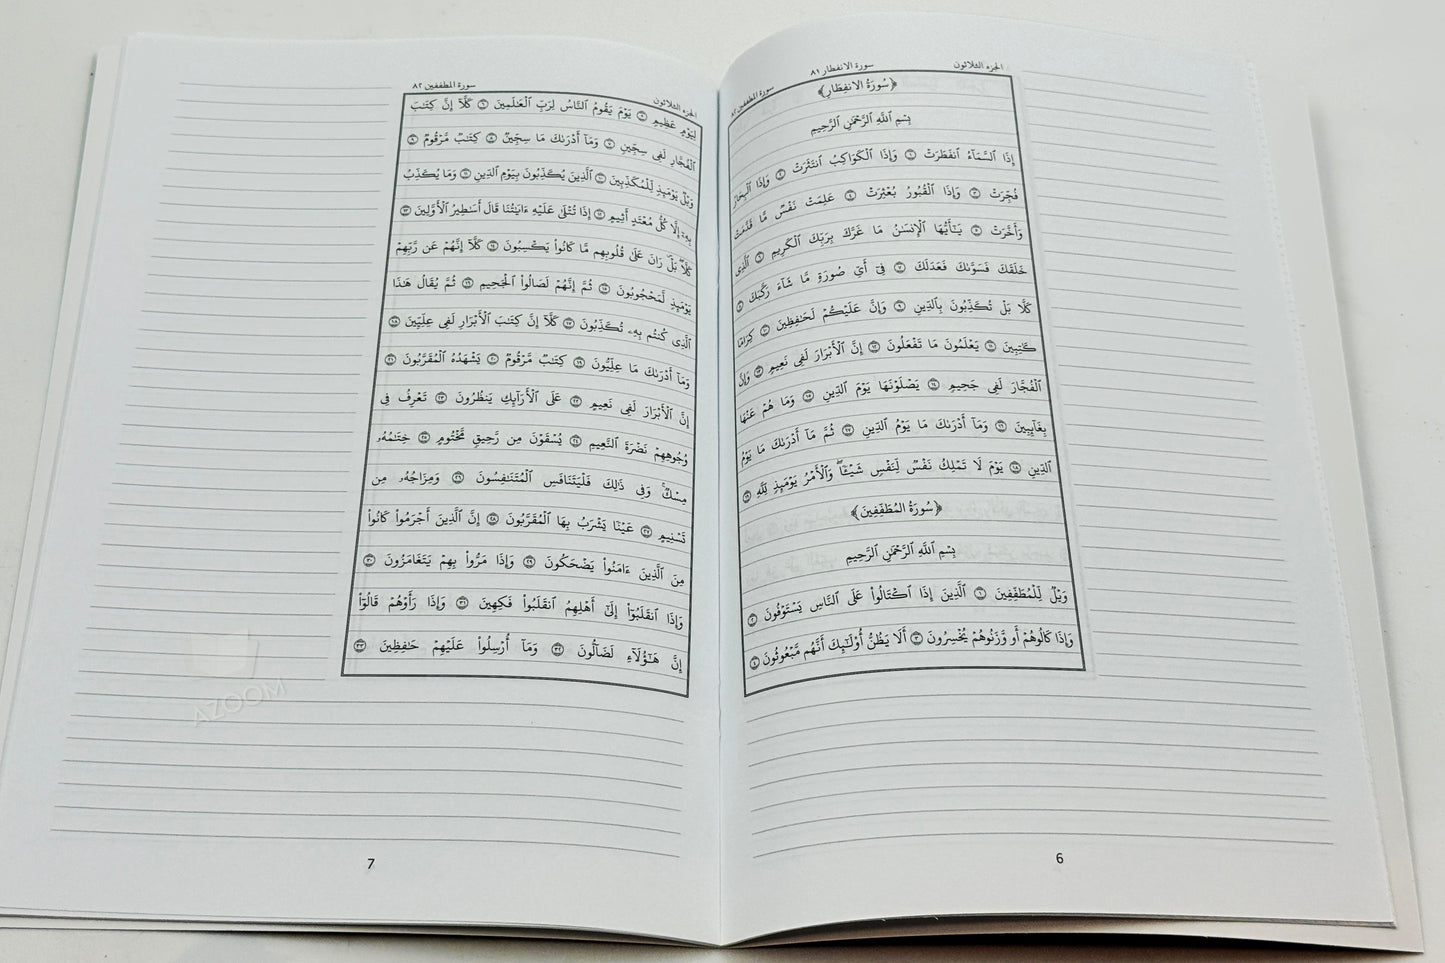 الجزء الثلاثون
سورة الانفطار ٨١
سورة المطففين ٨٢
﴿سُورَةُ الانفِطَارِ﴾
بِسْمِ ٱللَّهِ ٱلرَّحْمَٰنِ ٱلرَّحِيمِ
إِذَا ٱلسَّمَآءُ ٱنفَطَرَتْ ١ وَإِذَا ٱلْكَوَاكِبُ ٱنتَثَرَتْ ٢ وَإِذَا ٱلْبِحَارُ
فُجِّرَتْ ٣ وَإِذَا ٱلْقُبُورُ بُعْثِرَتْ ٤ عَلِمَتْ نَفْسٌ مَّا قَدَّمَتْ
وَأَخَّرَتْ ٥ يَٰٓأَيُّهَا ٱلْإِنسَٰنُ مَا غَرَّكَ بِرَبِّكَ ٱلْكَرِيمِ ٦ ٱلَّذِى
خَلَقَكَ فَسَوَّىٰكَ فَعَدَلَكَ ٧ فِىٓ أَىِّ صُورَةٍ مَّا شَآءَ رَكَّبَكَ ٨
كَلَّا بَلْ تُكَذِّبُونَ بِٱلدِّينِ ٩ وَإِنَّ عَلَيْكُمْ لَحَٰفِظِينَ ١٠ كِرَامًا
كَٰتِبِينَ ١١ يَعْلَمُونَ مَا تَفْعَلُونَ ١٢ إِنَّ ٱلْأَبْرَارَ لَفِى نَعِيمٍ ١٣ وَإِنَّ
ٱلْفُجَّارَ لَفِى جَحِيمٍ ١٤ يَصْلَوْنَهَا يَوْمَ ٱلدِّينِ ١٥ وَمَا هُمْ عَنْهَا
بِغَآئِبِينَ ١٦ وَمَآ أَدْرَىٰكَ مَا يَوْمُ ٱلدِّينِ ١٧ ثُمَّ مَآ أَدْرَىٰكَ مَا يَوْمُ
ٱلدِّينِ ١٨ يَوْمَ لَا تَمْلِكُ نَفْسٌ لِّنَفْسٍ شَيْـًٔا ۖ وَٱلْأَمْرُ يَوْمَئِذٍ لِّلَّهِ ١٩
﴿سُورَةُ المُطَفِّفِينَ﴾
بِسْمِ ٱللَّهِ ٱلرَّحْمَٰنِ ٱلرَّحِيمِ
وَيْلٌ لِّلْمُطَفِّفِينَ ١ ٱلَّذِينَ إِذَا ٱكْتَالُوا۟ عَلَى ٱلنَّاسِ يَسْتَوْفُونَ ٢
وَإِذَا كَالُوهُمْ أَو وَّزَنُوهُمْ يُخْسِرُونَ ٣ أَلَا يَظُنُّ أُو۟لَٰٓئِكَ أَنَّهُم مَّبْعُوثُونَ ٤
6
الجزء الثلاثون
سورة المطففين ٨٢
لِيَوْمٍ عَظِيمٍ ٥ يَوْمَ يَقُومُ ٱلنَّاسُ لِرَبِّ ٱلْعَٰلَمِينَ ٦ كَلَّآ إِنَّ كِتَٰبَ
ٱلْفُجَّارِ لَفِى سِجِّينٍ ٧ وَمَآ أَدْرَىٰكَ مَا سِجِّينٌ ٨ كِتَٰبٌ مَّرْقُومٌ ٩
وَيْلٌ يَوْمَئِذٍ لِّلْمُكَذِّبِينَ ١٠ ٱلَّذِينَ يُكَذِّبُونَ بِيَوْمِ ٱلدِّينِ ١١ وَمَا يُكَذِّبُ
بِهِۦٓ إِلَّا كُلُّ مُعْتَدٍ أَثِيمٍ ١٢ إِذَا تُتْلَىٰ عَلَيْهِ ءَايَٰتُنَا قَالَ أَسَٰطِيرُ ٱلْأَوَّلِينَ ١٣
كَلَّا ۖ بَلْ ۜ رَانَ عَلَىٰ قُلُوبِهِم مَّا كَانُوا۟ يَكْسِبُونَ ١٤ كَلَّآ إِنَّهُمْ عَن رَّبِّهِمْ
يَوْمَئِذٍ لَّمَحْجُوبُونَ ١٥ ثُمَّ إِنَّهُمْ لَصَالُوا۟ ٱلْجَحِيمِ ١٦ ثُمَّ يُقَالُ هَٰذَا
ٱلَّذِى كُنتُم بِهِۦ تُكَذِّبُونَ ١٧ كَلَّآ إِنَّ كِتَٰبَ ٱلْأَبْرَارِ لَفِى عِلِّيِّينَ ١٨
وَمَآ أَدْرَىٰكَ مَا عِلِّيُّونَ ١٩ كِتَٰبٌ مَّرْقُومٌ ٢٠ يَشْهَدُهُ ٱلْمُقَرَّبُونَ ٢١
إِنَّ ٱلْأَبْرَارَ لَفِى نَعِيمٍ ٢٢ عَلَى ٱلْأَرَآئِكِ يَنظُرُونَ ٢٣ تَعْرِفُ فِى
وُجُوهِهِمْ نَضْرَةَ ٱلنَّعِيمِ ٢٤ يُسْقَوْنَ مِن رَّحِيقٍ مَّخْتُومٍ ٢٥ خِتَٰمُهُۥ
مِسْكٌ ۚ وَفِى ذَٰلِكَ فَلْيَتَنَافَسِ ٱلْمُتَنَٰفِسُونَ ٢٦ وَمِزَاجُهُۥ مِن
تَسْنِيمٍ ٢٧ عَيْنًا يَشْرَبُ بِهَا ٱلْمُقَرَّبُونَ ٢٨ إِنَّ ٱلَّذِينَ أَجْرَمُوا۟ كَانُوا۟
مِنَ ٱلَّذِينَ ءَامَنُوا۟ يَضْحَكُونَ ٢٩ وَإِذَا مَرُّوا۟ بِهِمْ يَتَغَامَزُونَ ٣٠
وَإِذَا ٱنقَلَبُوٓا۟ إِلَىٰٓ أَهْلِهِمُ ٱنقَلَبُوا۟ فَكِهِينَ ٣١ وَإِذَا رَأَوْهُمْ قَالُوٓا۟
إِنَّ هَٰٓؤُلَآءِ لَضَآلُّونَ ٣٢ وَمَآ أُرْسِلُوا۟ عَلَيْهِمْ حَٰفِظِينَ ٣٣
7
AZOOM